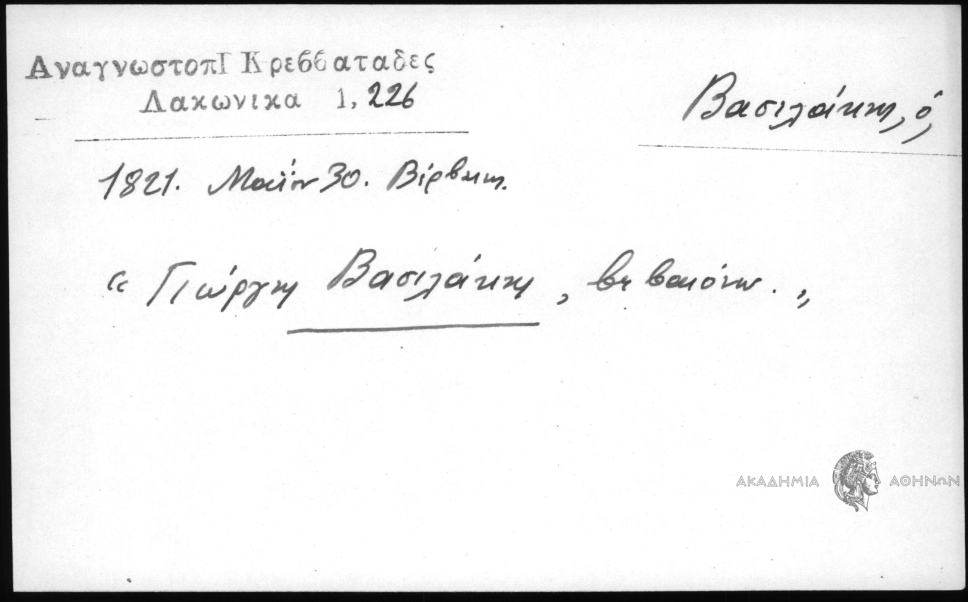 ΑναγνωστοπΓ Κρεββαταδες
Λακωνικα 1, 226
Βασιλάκης, ὁ,
1821. Μαΐου 30. Βέρβενα.
“ Γιώργης Βασιλάκης, βεβαιόνω. „
ΑΚΑΔΗΜΙΑ ΑΘΗΝΩΝ